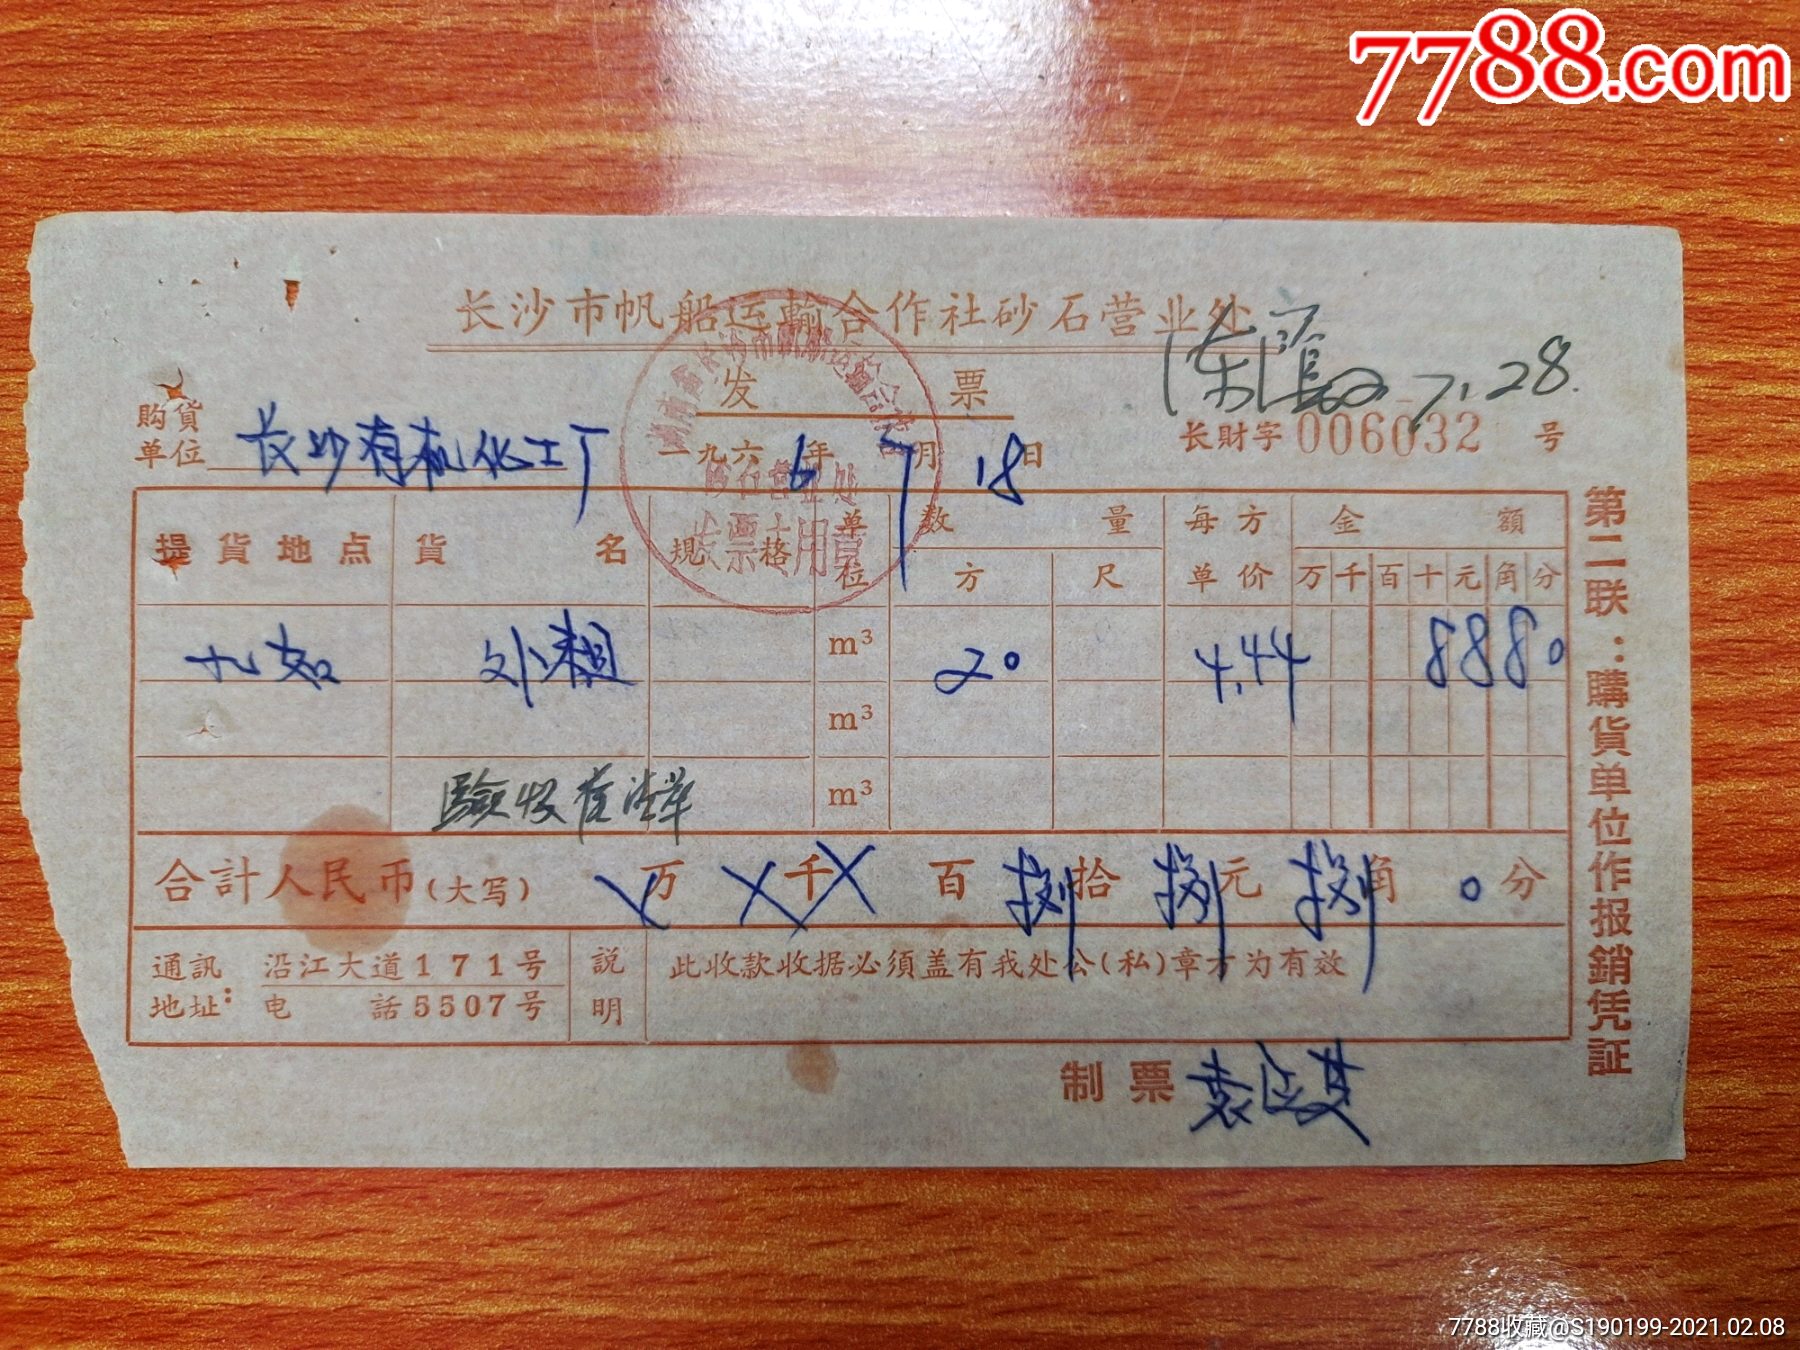 7788.com
长沙市帆船运输合作社砂石营业处
发票
7.28.
购貨单位 长沙有机化工厂
一九六6年7月18日
长財字 006032 号
提貨地点 貨名 規格 单位 数量 每方单价 金額
方 尺 万 千 百 十 元 角 分
九如 外粗 m³ 20 4.44 8880
m³
驗收 m³
合計人民币(大写) X万 X千 X百 捌拾 捌元 捌角 0分
通訊地址: 沿江大道171号 説明 此收款收据必须盖有我处公(私)章才为有效
电話5507号
制票 袁
第二联:購貨单位作报銷凭証
砂石营业处
发票专用章
7788收藏@S190199-2021.02.08